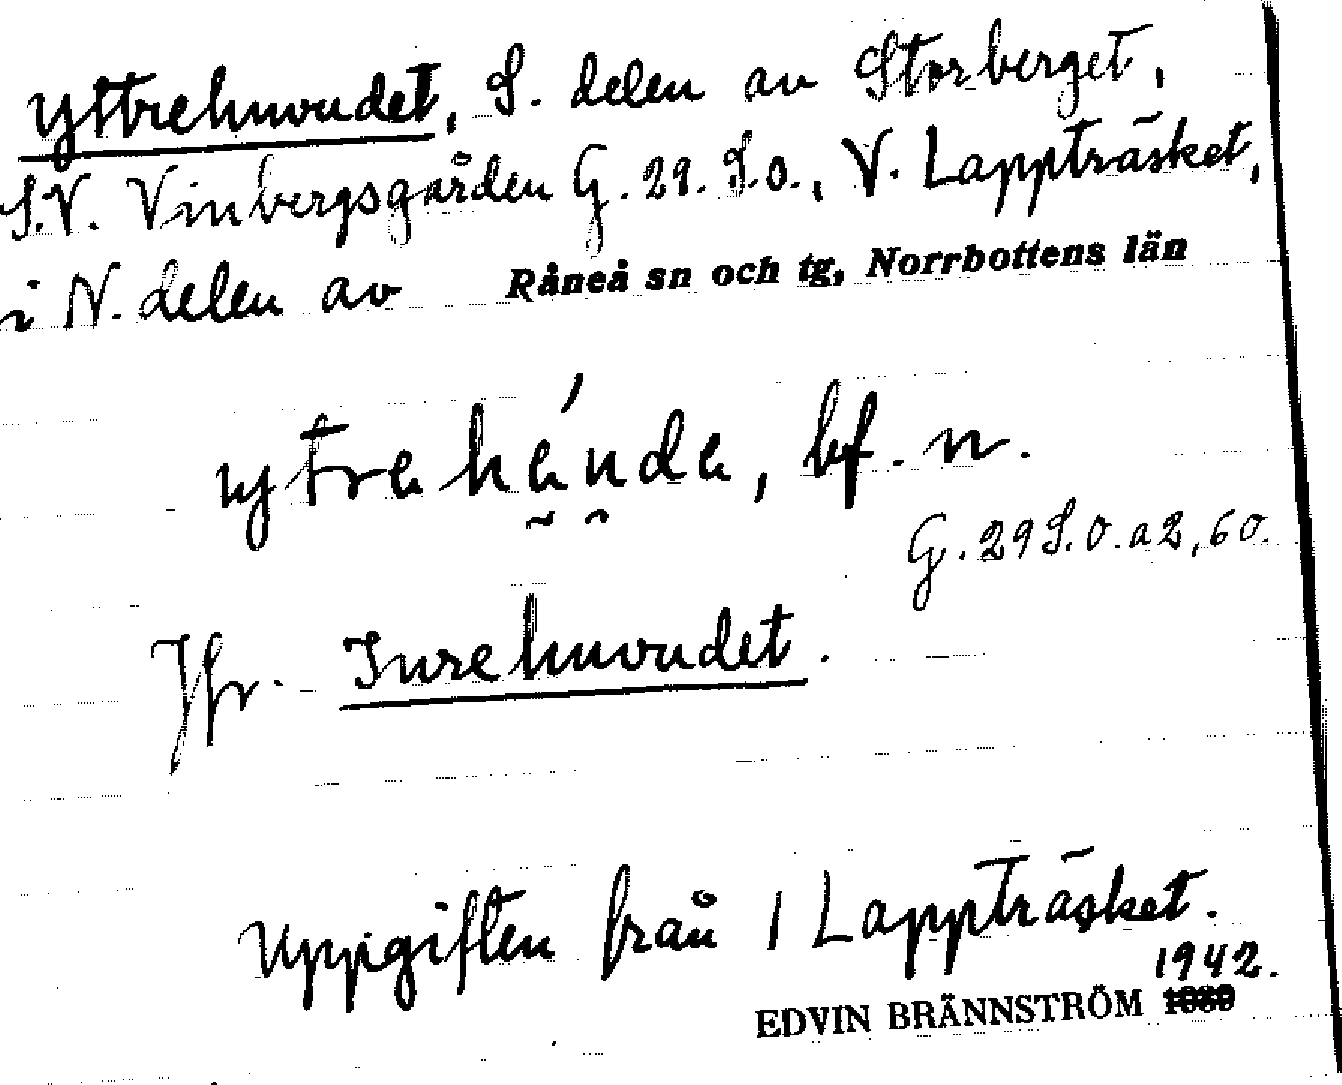 Yttrehuvudet, S. delen av Storberget,
S.V. Vinbergsgården G. 29. S.O., V. Lappträsket,
i N. delen av Råneå sn och tg, Norrbottens län
bf. n.
G. 29 S.O. a 2, 60.
Jfr. Inrehuvudet.
Uppgiften från 1 Lappträsket.
1942.
EDVIN BRÄNNSTRÖM